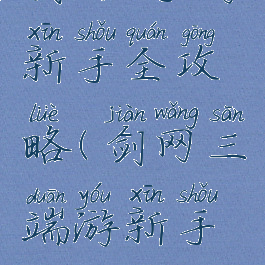 xīn shǒu quán gōng
新手全攻
lüè jiàn wǎng sān
略(剑网三
duān yóu xīn shǒu
端游新手